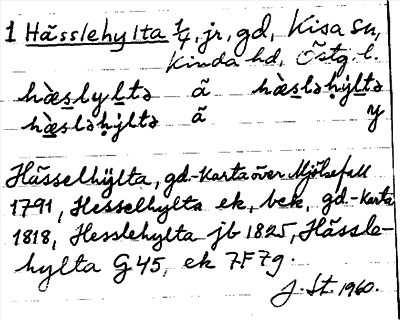 1 Hässlehylta 1/4, jr, gd, Kisa sn,
Kinda hd, Östg. l.
hæ̀s̲lyl̲tə ã hæ̀s̲ləḥýl̲tə
hæ̀s̲ləḥýltə ã y
Hässelhÿlta, gd.-Karta över Mjölsefall
1791, Hesselhylta ek, bek, gd.-Karta
1818, Hesslehylta jb 1825, Hässle-
hylta G45, ek 7F7g.
J. St. 1960.